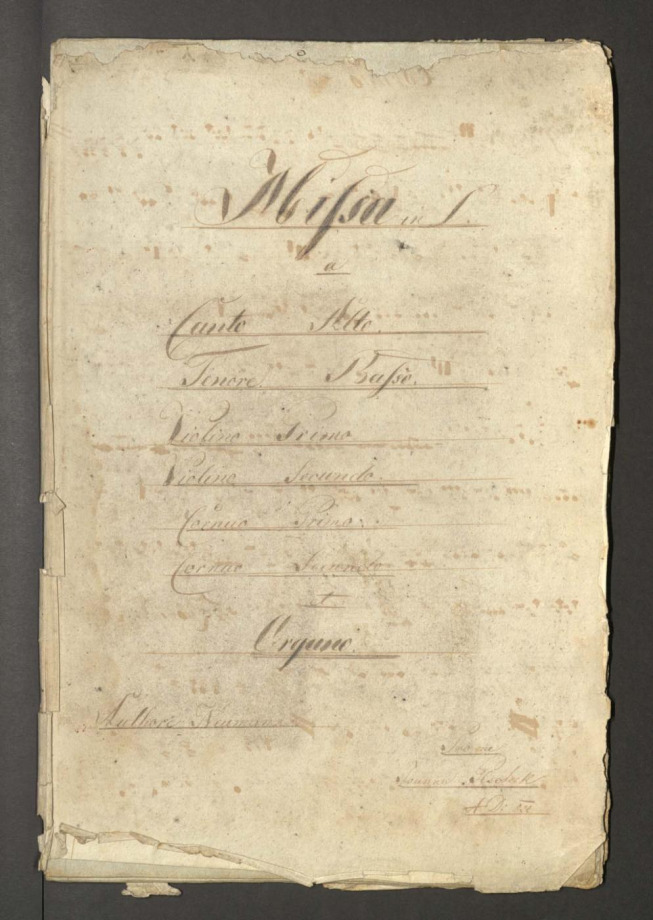 Missa in
a
Canto Alto.
Tenore. Basso.
Violino Primo
Violino Secundo.
Cornuo Primo.
Cornuo Secundo
et
Organo.
Authore Neumann
Pro me